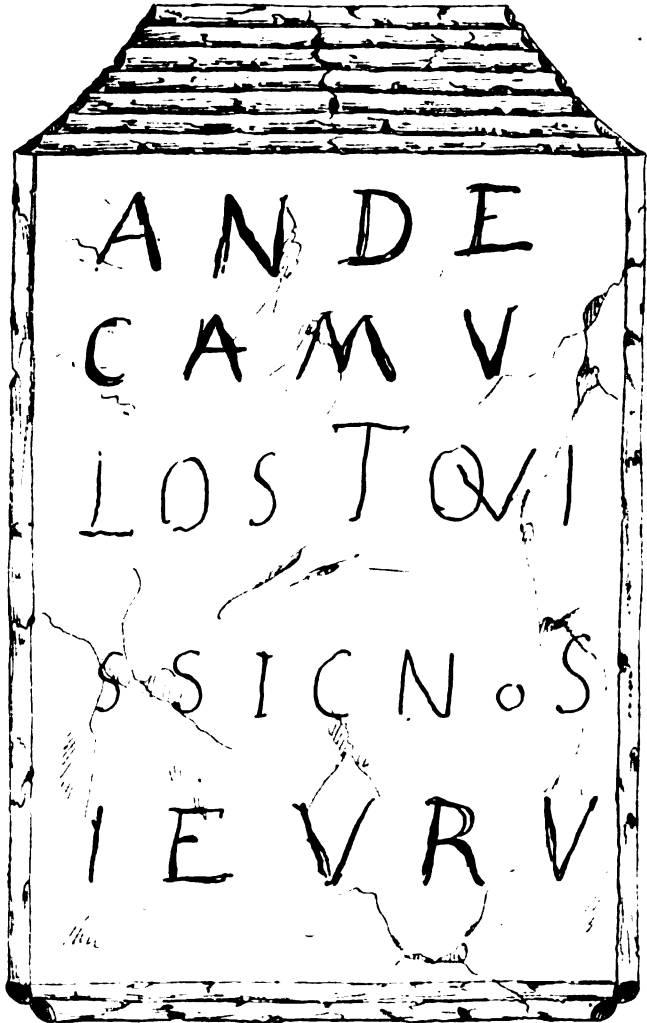 ANDE
CAMV
LOSTOVI
SSICNoS
IEVRV